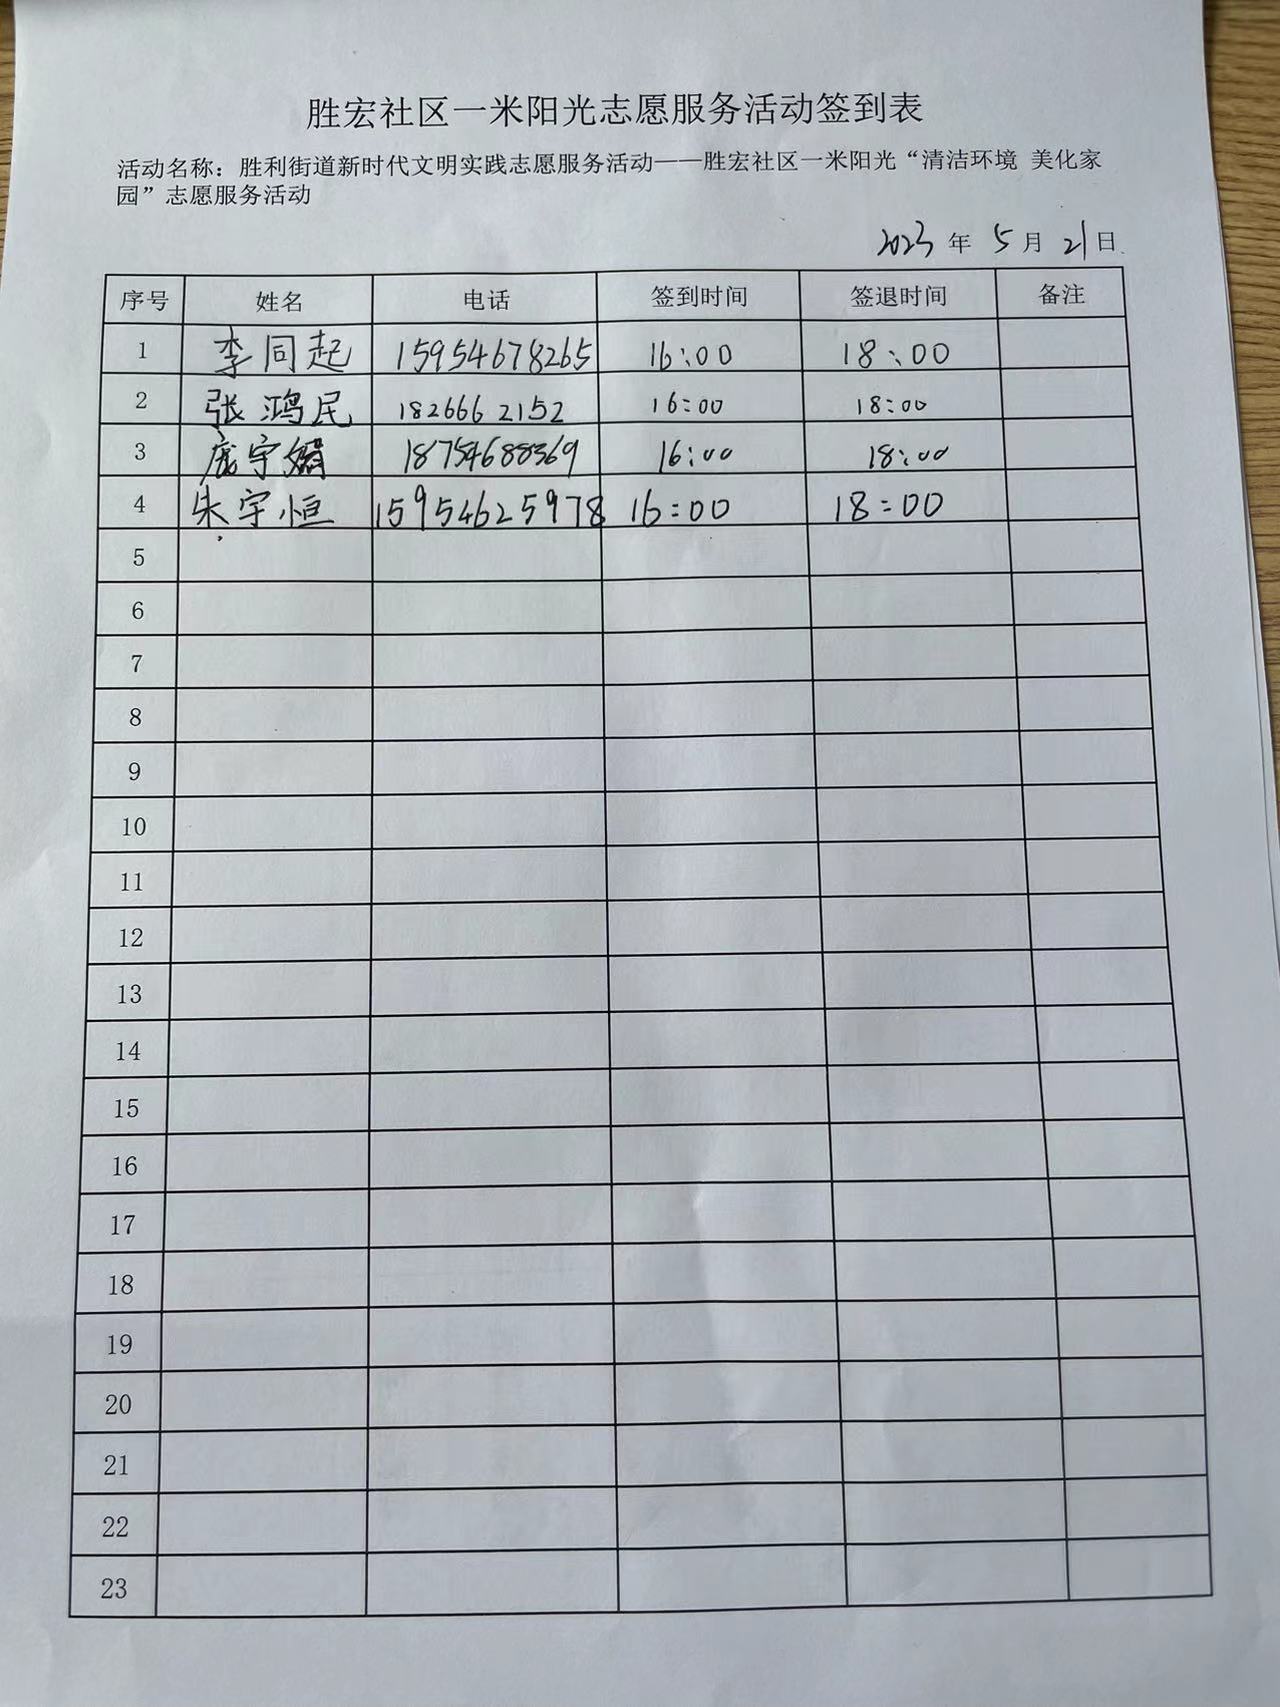 胜宏社区一米阳光志愿服务活动签到表
活动名称：胜利街道新时代文明实践志愿服务活动——胜宏社区一米阳光“清洁环境 美化家
园”志愿服务活动
2023 年 5 月 21 日
序号 姓名 电话 签到时间 签退时间 备注
1 李同起 15954678265 16:00 18:00
2 张鸿民 182666 2152 16:00 18:00
3 庞宇娟 18754688369 16:00 18:00
4 朱宇恒 15954625978 16:00 18:00
5
6
7
8
9
10
11
12
13
14
15
16
17
18
19
20
21
22
23